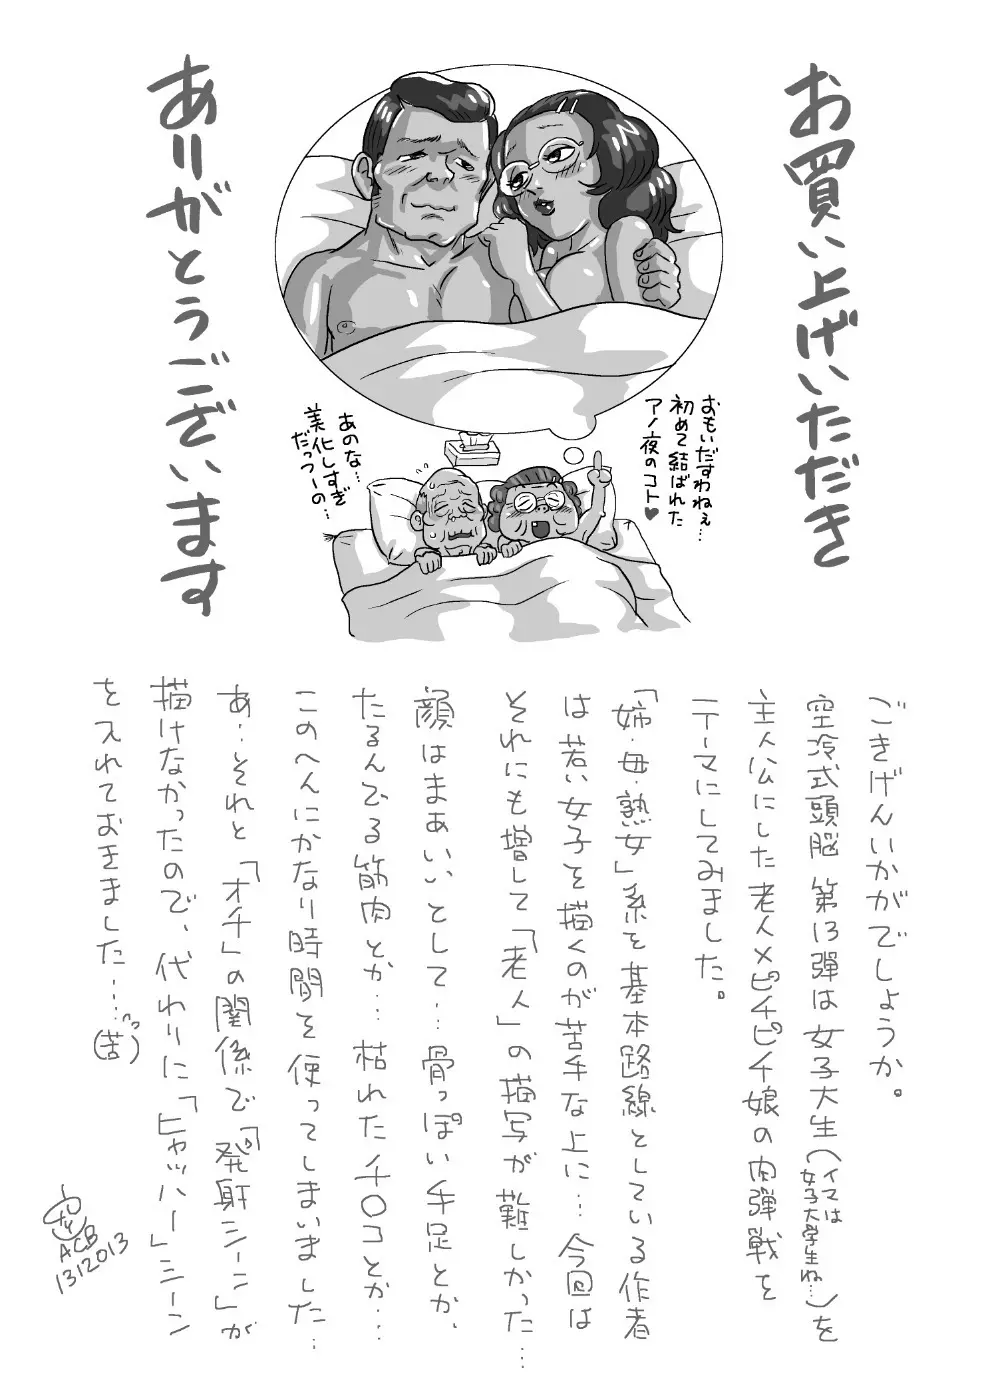 お買い上げいただき
ありがとうございます
おもいだすわねぇ…
初めて結ばれた
アノ夜のコト♥
あのな…
美化しすぎ
だっつーの…
ごきげんいかがでしょうか。
空冷式頭脳 第13弾は女子大生(イマは女子大学生ね…)を
主人公にした老人×ピチピチ娘の肉弾戦を
テーマにしてみました。
「姉・母・熟女」系を基本路線としている作者
は若い女子を描くのが苦手な上に…今回は
それにも増して「老人」の描写が難しかった…
顔はまぁいいとして…骨っぽい手足とか、
たるんでる筋肉とか…枯れたチ〇コとか…
このへんにかなり時間を使ってしまいました…
あ…それと「オチ」の関係で「発射シーン」が
描けなかったので、代わりに「ヒャッハー」シーン
を入れておきました……(苦)
ACB
1312013